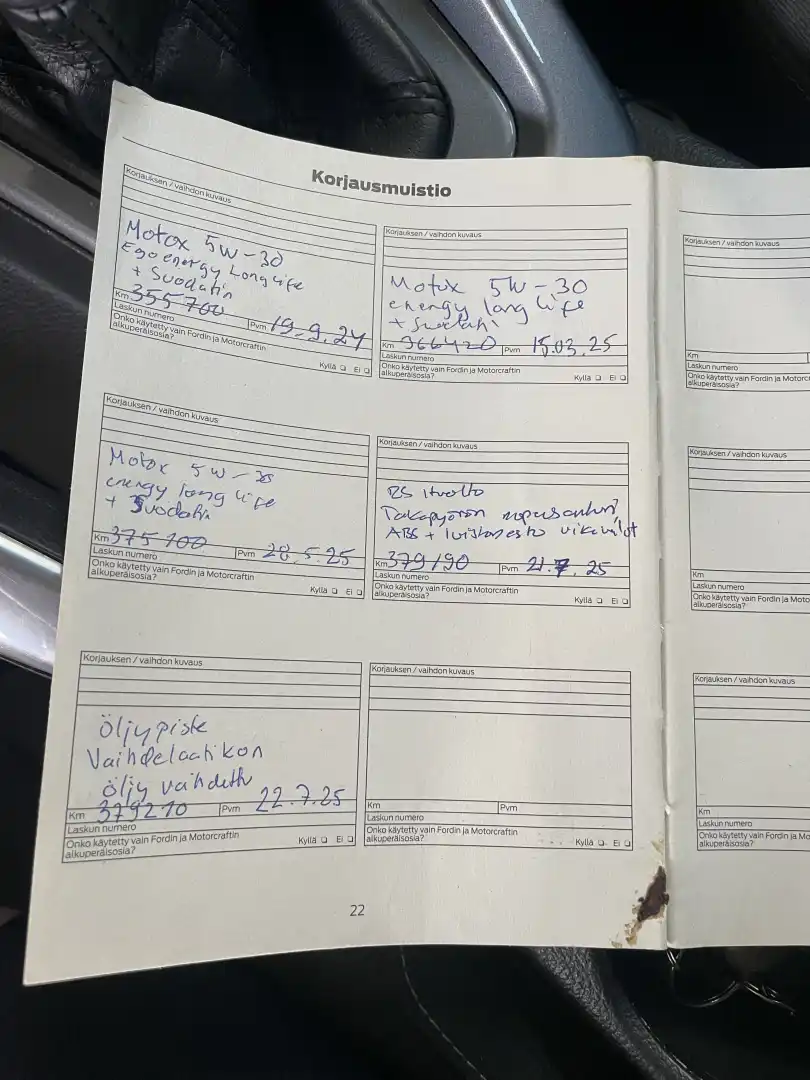 Korjausmuistio
Korjauksen / vaihdon kuvaus
Motox 5W-30
Egoenergy Longlife
+ Suodatin
Km 355 700 Pvm 19.9.24
Laskun numero
Onko käytetty vain Fordin ja Motorcraftin
alkuperäisosia?
Kyllä Ei
Korjauksen / vaihdon kuvaus
Motox 5W-30
energy long life
+ Suodati
Km 366420 Pvm 15.03.25
Laskun numero
Onko käytetty vain Fordin ja Motorcraftin
alkuperäisosia?
Kyllä Ei
Korjauksen / vaihdon kuvaus
Motox 5W-30
energy long life
+ Suodatin
Km 375 100 Pvm 28.5.25
Laskun numero
Onko käytetty vain Fordin ja Motorcraftin
alkuperäisosia?
Kyllä Ei
Korjauksen / vaihdon kuvaus
RS Huolto
Takapyörän nopusanturi
ABS + luistonesto vikavalot
Km 379190 Pvm 21.7.25
Laskun numero
Onko käytetty vain Fordin ja Motorcraftin
alkuperäisosia?
Kyllä Ei
Korjauksen / vaihdon kuvaus
Öljypiste
Vaihdelaatikon
öljy vaihdettu
Km 379210 Pvm 22.7.25
Laskun numero
Onko käytetty vain Fordin ja Motorcraftin
alkuperäisosia?
Kyllä Ei
Korjauksen / vaihdon kuvaus
Km Pvm
Laskun numero
Onko käytetty vain Fordin ja Motorcraftin
alkuperäisosia?
Kyllä Ei
22
Korjauksen / vaihdon kuvaus
Km
Laskun numero
Onko käytetty vain Fordin ja Motorc
alkuperäisosia?
Korjauksen / vaihdon kuvaus
Km
Laskun numero
Onko käytetty vain Fordin ja Moto
alkuperäisosia?
Korjauksen / vaihdon kuvaus
Km
Laskun numero
Onko käytetty vain Fordin ja Mo
alkuperäisosia?